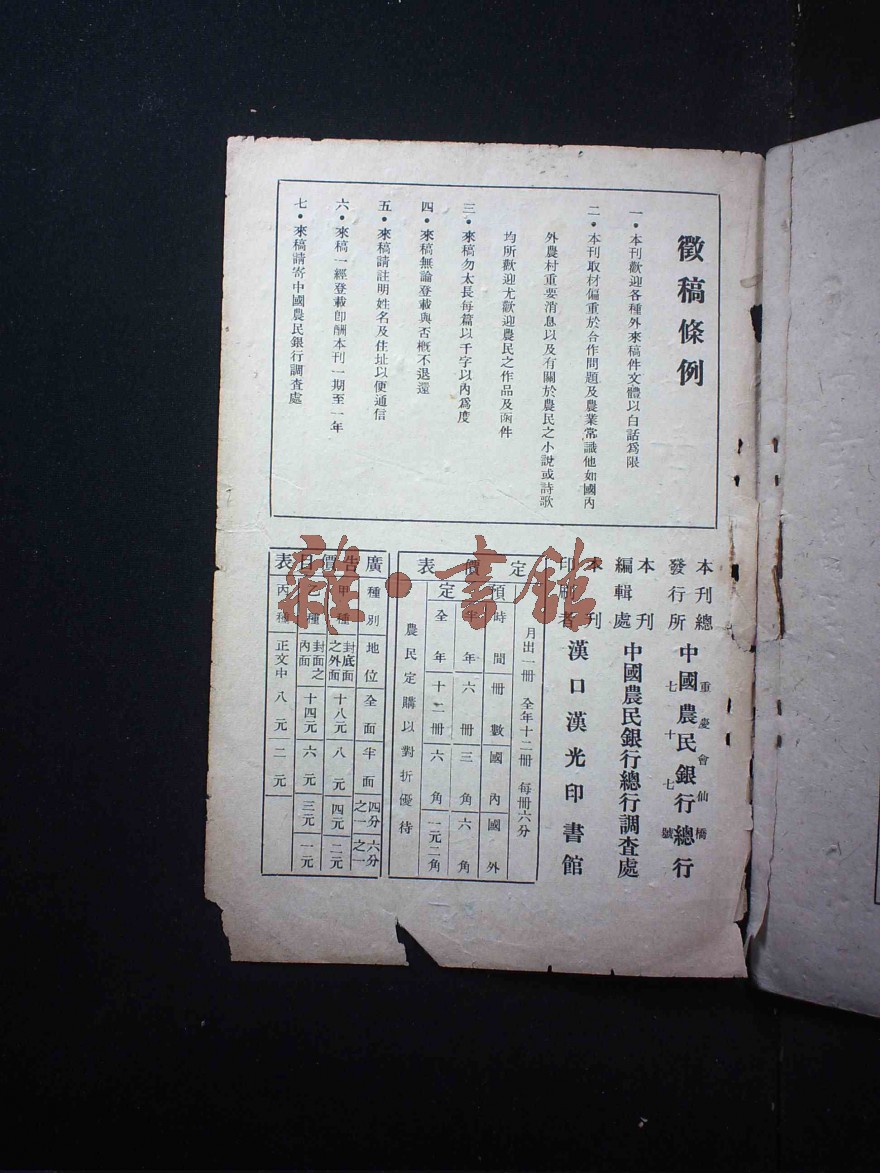 徵稿條例
一・本刊歡迎各種外來稿件文體以白話爲限
二・本刊取材偏重於合作問題及農業常識他如國內
外農村重要消息以及有關於農民之小說或詩歌
均所歡迎尤歡迎農民之作品及函件
三・來稿勿太長每篇以千字以內爲度
四・來稿無論登載與否概不退還
五・來稿請註明姓名及住址以便通信
六・來稿一經登載卽酬本刊一期至一年
七・來稿請寄中國農民銀行調查處
本刊總發行所
中國農民銀行總行
重慶會仙橋
七十七號
本刊編輯處
中國農民銀行總行調查處
本刊印刷者
漢口漢光印書館
定價表
月出一冊 全年十二冊 每冊六分
預定
時間 冊數 國內 國外
半年 六冊 三角 六角
全年 十二冊 六角 一元二角
農民定購以對折優待
廣告價目表
種別 地位 全面 半面 四分之一 六分之一
甲種 封底面之外面 十八元 八元 四元 二元
乙種 封面之內面 十四元 六元 三元 一元
丙種 正文中 八元 二元
雜・書館